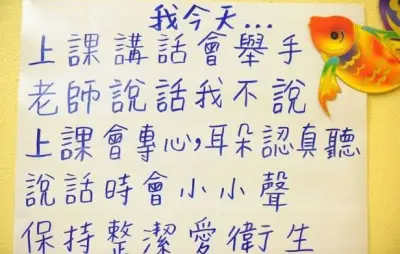 我今天...
上課講話會舉手
老師說話我不說
上課會專心,耳朵認真聽
說話時會小小聲
保持整潔愛衛生